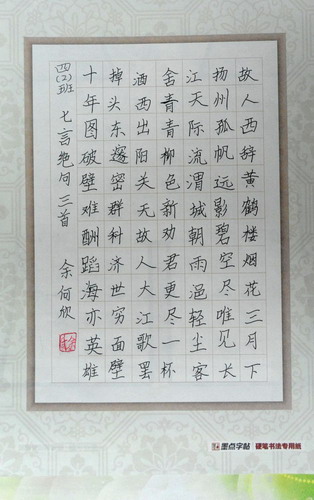 故人西辞黄鹤楼烟花三月下
扬州孤帆远影碧空尽唯见长
江天际流渭城朝雨浥轻尘客
舍青青柳色新劝君更尽一杯
酒西出阳关无故人大江歌罢
掉头东邃密群科济世穷面壁
十年图破壁难酬蹈海亦英雄
四(2)班 七言绝句三首 余何欣
墨点字帖 硬笔书法专用纸